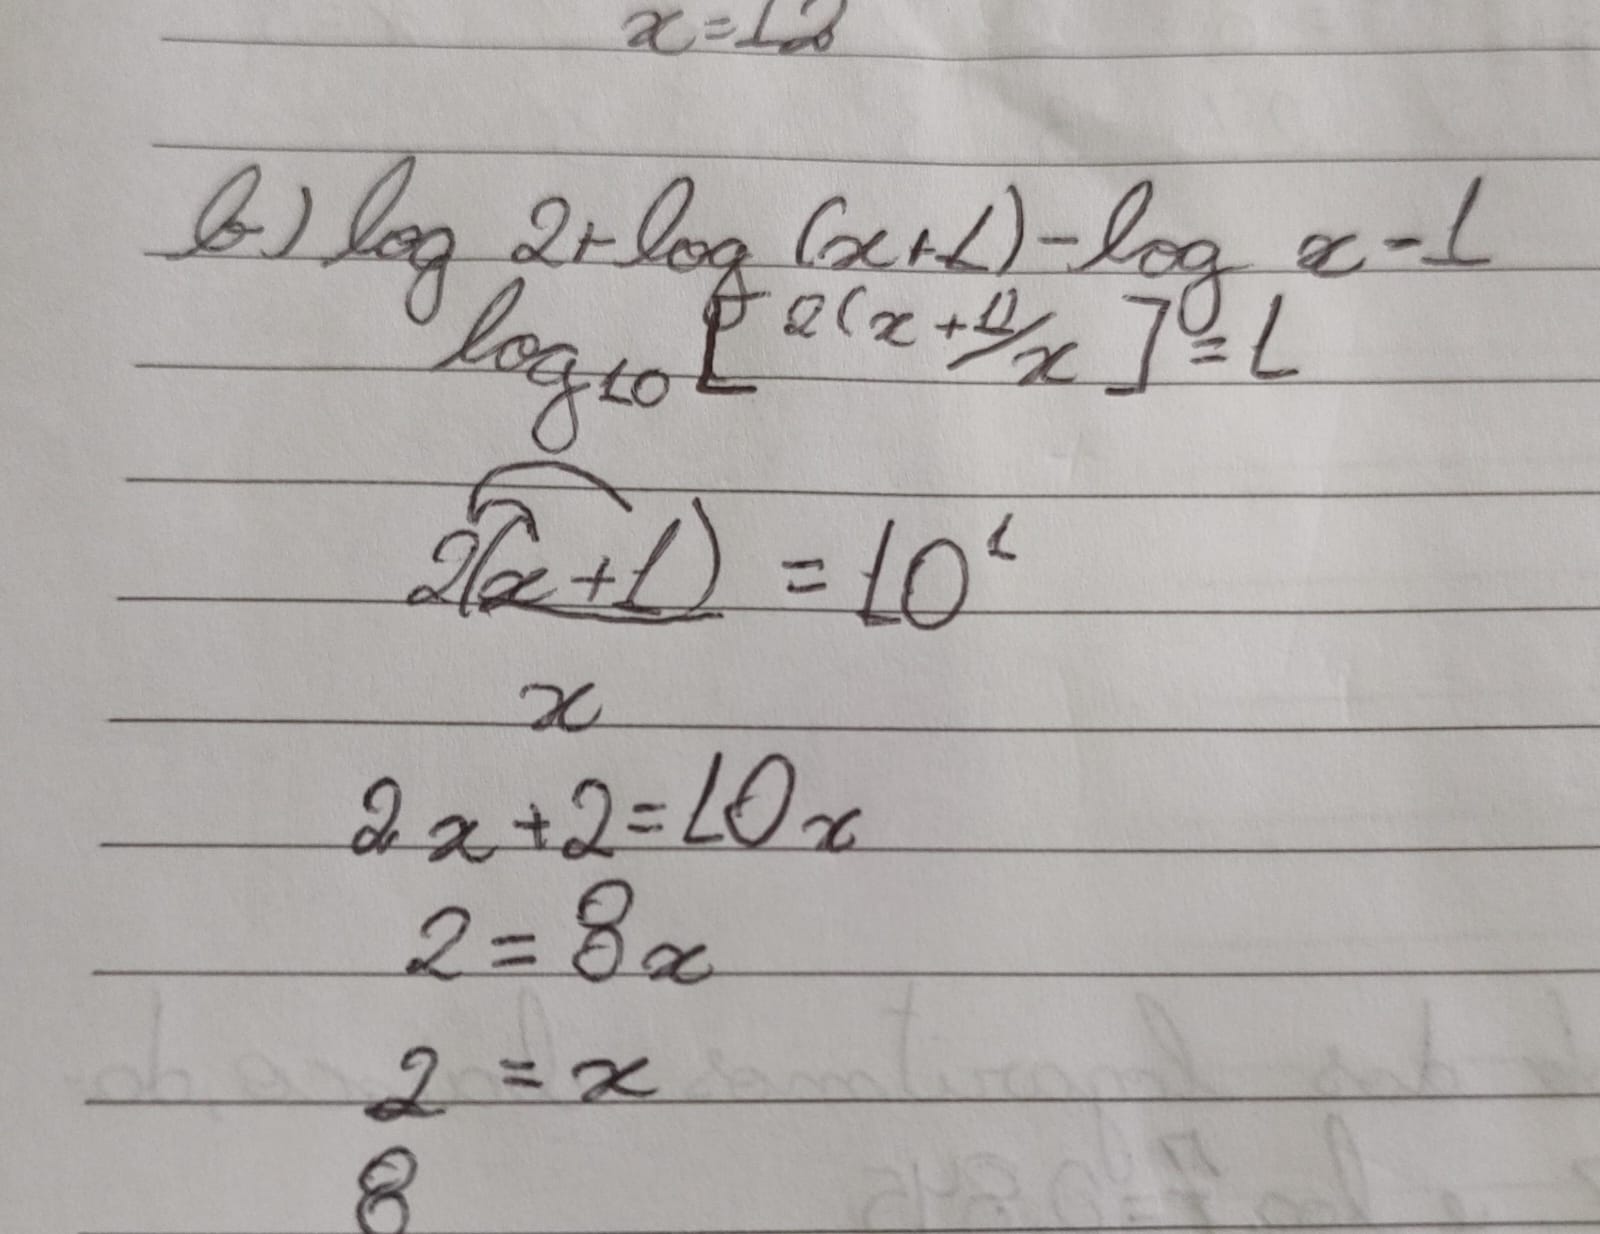 x=12
b) log 2+log (x+1)-log x-1
log10 [2(x+1)/x]=1
2(x+1) = 10¹
x
2x+2=10x
2=8x
2 = x
8